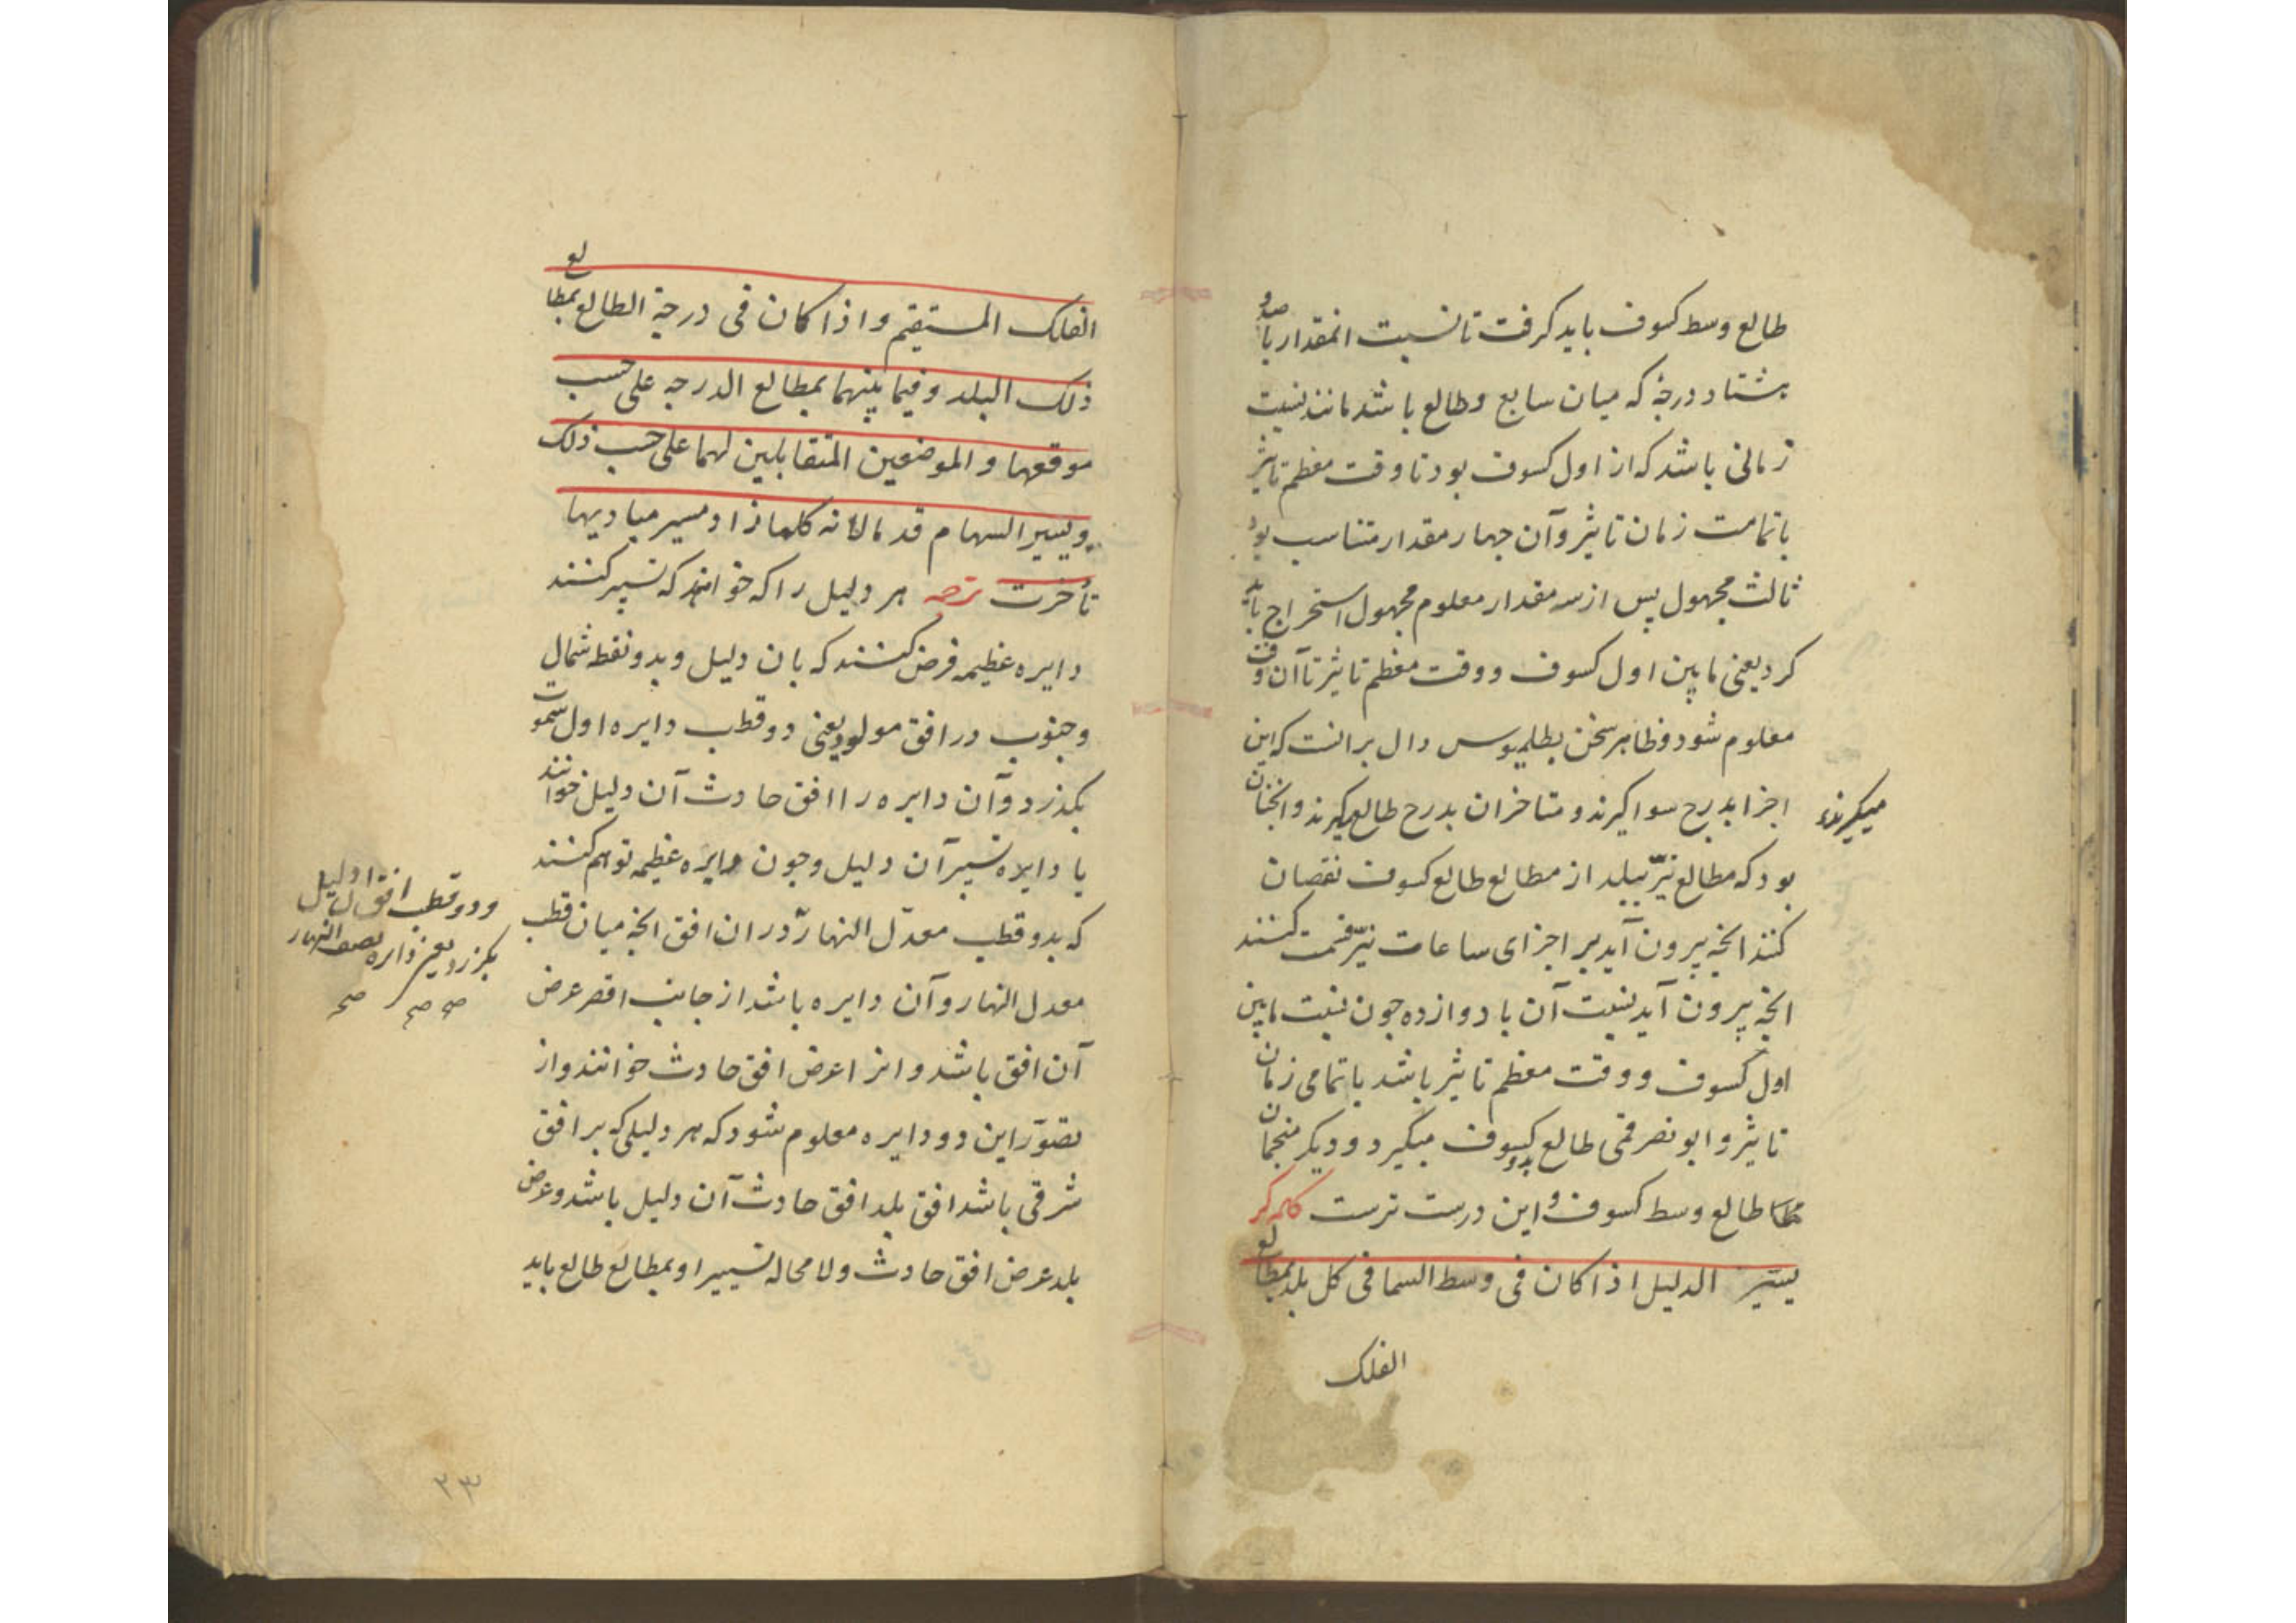 طالع وسط کسوف باید کرفت تا نسبت انمقدار با صد و
هشتاد درجه که میان سابع و طالع باشد مانند نسبت
زمانی باشد که از اول کسوف بود تا وقت معظم تاثیر
با تمامت زمان تاثیر و آن چهار مقدار متناسب بود
ثالث مجهول پس از سه مقدار معلوم مجهول استخراج باید
کرد یعنی مابین اول کسوف و وقت معظم تاثیر تا آن وقت
معلوم شود و ظاهر سخن بطلمیوس دال برانست که این
اجزا بدرج سوا کیرند و متاخران بدرج طالع میکیرند و انچنان
میکیرند
بود که مطالع نیّر ببلد از مطالع طالع کسوف نقصان
کنند انچه بیرون آید بر اجزای ساعات نیّر قسمت کنند
انچه بیرون آید نسبت آن با دوازده چون نسبت مابین
اول کسوف و وقت معظم تاثیر باشد با تمامی زمان
تاثیر و ابو نصر قمی طالع بدو کسوف میگیرد و دیکر منجمان
طالع وسط کسوف و این درست ترست کلمه کر
یسیّر الدلیل اذا کان فی وسط السما فی کل بلد بمطالع
الفلک
الفلک المستقیم و اذا کان فی درجة الطالع بمطالع
ذلک البلد و فیما بینهما بمطالع الدرجه علی حسب
موقعها و الموضعین المتقابلین لهما علی حسب ذلک
ویسیر السهام قدما لانه کلما زاد مسیر مبادیها
تأخرت ترجمه هر دلیل را که خواهند که تسییر کنند
دایره عظیمه فرض کنند که بان دلیل و بدو نقطه شمال
و جنوب در افق مولود یعنی دو قطب دایره اول سموت
بکذرد و آن دایره را افق حادث آن دلیل خوانند
یا دایره تسییر آن دلیل و چون دایره عظیمه توهم کنند
که بدو قطب معدّل النهار دران افق انچه میان قطب
و دو قطب افق ان دلیل
بکزرد یعنی دایره نصف النهار
صح صح صح
معدل النهار و آن دایره باشد از جانب اقصر عرض
آن افق باشد و انرا عرض افق حادث خوانند و از
تصوّر این دو دایره معلوم شود که هر دلیلی که بر افق
شرقی باشد افق بلد افق حادث آن دلیل باشد و عرض
بلد عرض افق حادث و لا محاله تسییر او بمطالع طالع باید
۲۳